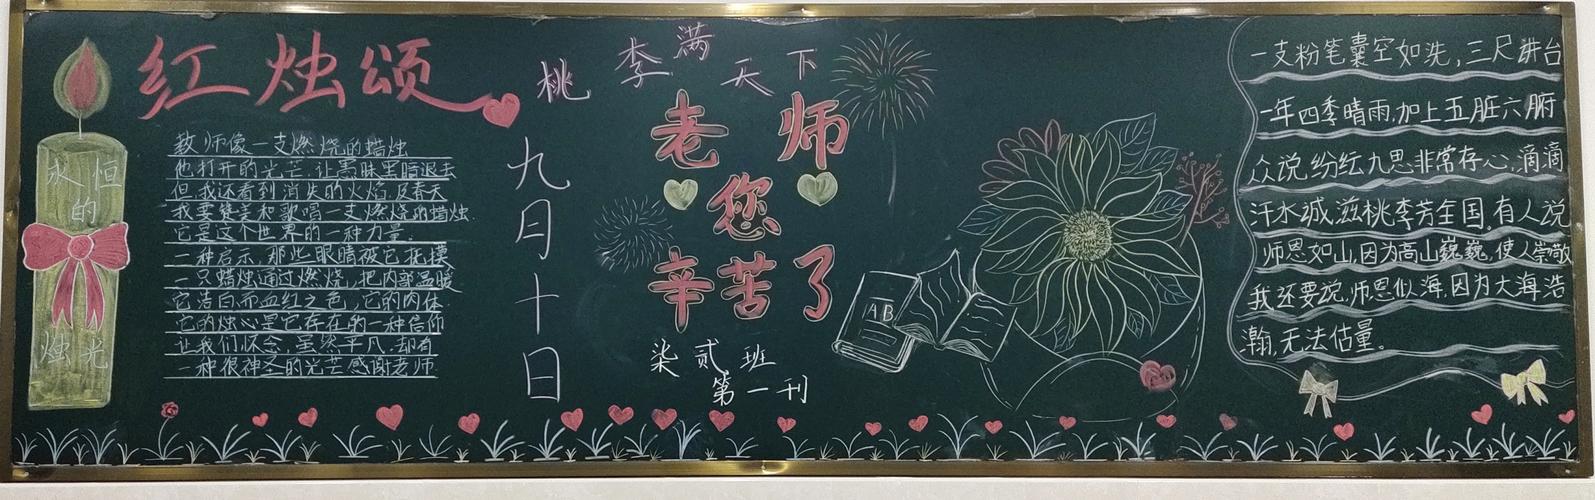 红烛颂
永恒
的
烛光
教师像一支燃烧的蜡烛
他打开的光芒,让愚昧黑暗退去
但我还看到消失的火焰,及春天
我要赞美和歌唱一支燃烧的蜡烛.
它是这个世界的一种力量.
一种启示,那些眼睛被它抚摸
一只蜡烛通过燃烧,把内部温暖
它洁白而血红之色,它的肉体.
它的烛心是它存在的一种信仰
让我们怀念,虽然平凡,却有
一种很神圣的光芒感谢老师
九月十日
桃李满天下
老师
您
辛苦了
柒贰班
第一刊
AB
一支粉笔囊空如洗,三尺讲台
一年四季晴雨,加上五脏六腑
众说,纷纭九思非常存心,滴滴
汗水诚滋桃李芳全国,有人说
师恩如山,因为高山巍巍,使人崇敬
我还要说,师恩似海,因为大海浩
瀚,无法估量。